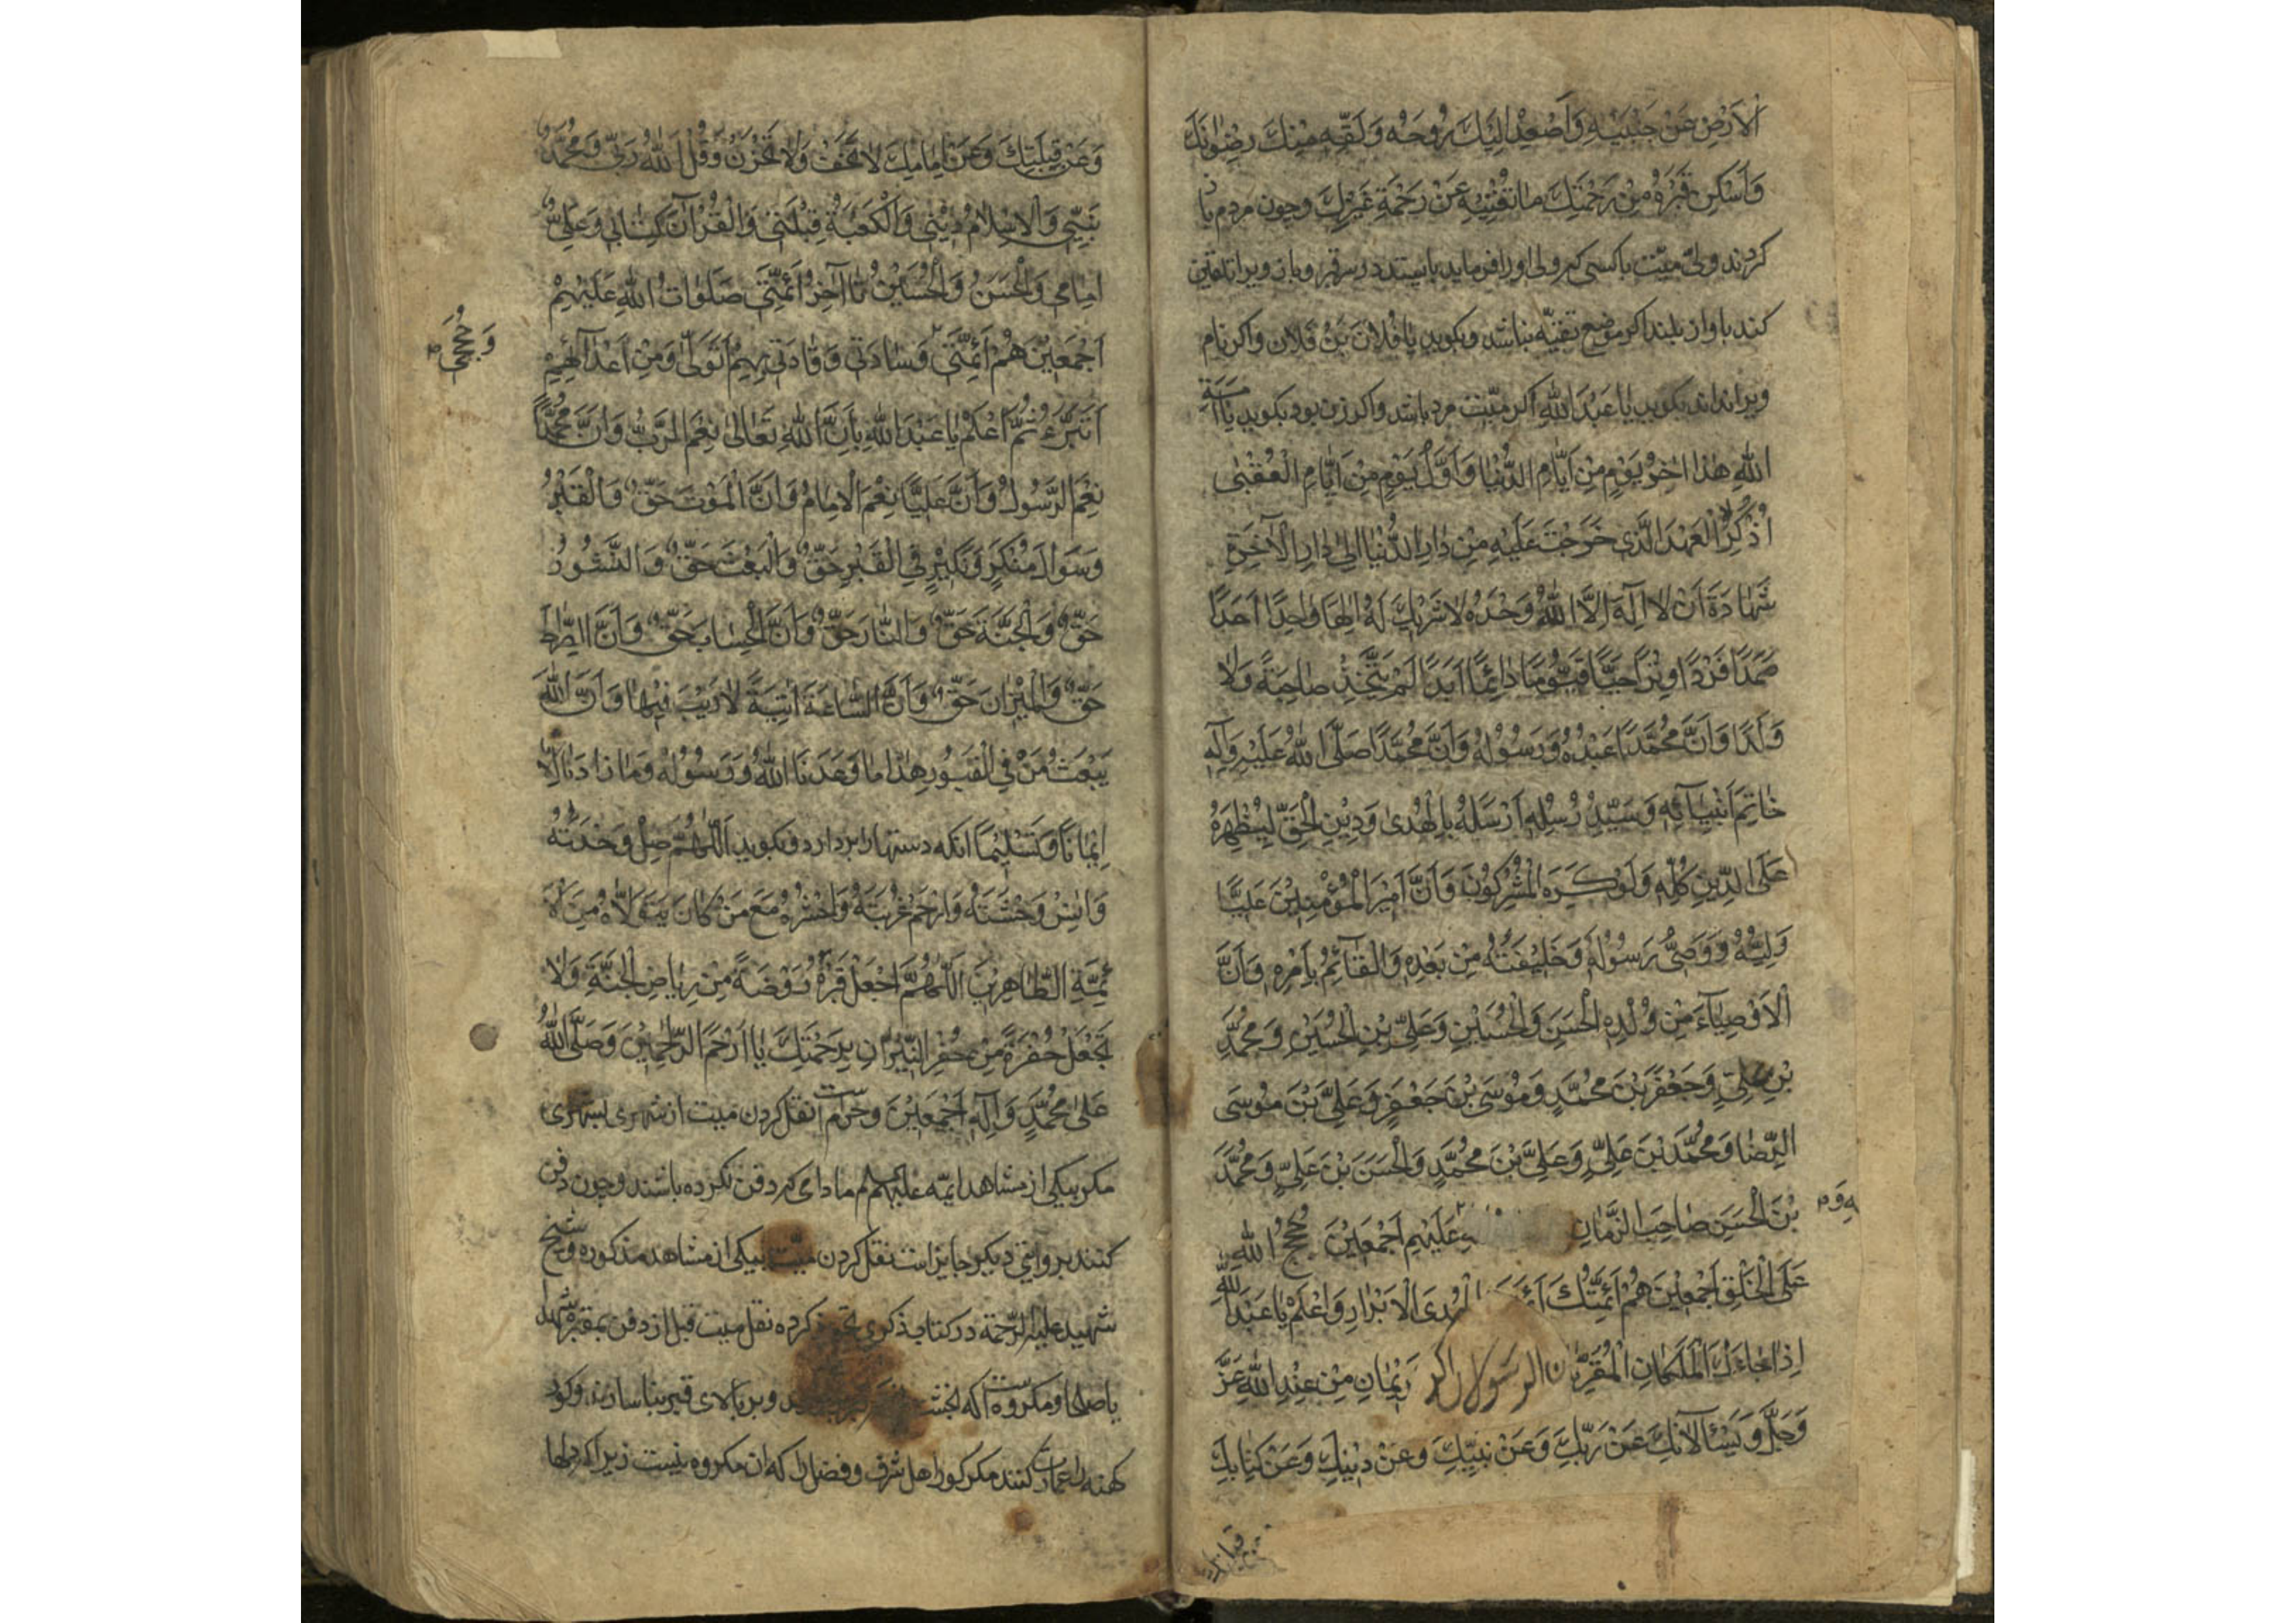 الْاَرْضِ عَنْ جَنْبَيْهِ وَاَصْعِدْ اِلَيْكَ رُوحَهُ وَلَقِّهِ مِنْكَ رِضْوَانَكَ
وَاَسْكِنْ قَبْرَهُ مِنْ رَحْمَتِكَ مَا تُغْنِيهِ عَنْ رَحْمَةِ غَيْرِكَ وچون مردم باز
کردند ولیّ میّت یا کسی که ولی او را فرماید بایستد در سر قبر و بان ویرا تلقین
کند باواز بلند اکر موضع تقیّه نباشد و بکوید یا فُلَانَ بْنَ فُلَان واکر نام
ویرا نداند بکوید یا عَبْدَ اللهِ اکر میّت مرد باشد واکر زن بود بکوید یَا اَمَةَ
اللهِ هٰذَا اٰخِرُ يَوْمٍ مِنْ اَيَّامِ الدُّنْيَا وَاَوَّلُ يَوْمٍ مِنْ اَيَّامِ الْعُقْبٰى
اُذْكُرِ الْعَهْدَ الَّذِي خَرَجْتَ عَلَيْهِ مِنْ دَارِ الدُّنْيَا اِلىٰ دَارِ الْآخِرَةِ
شَهَادَةَ اَنْ لَا اِلٰهَ اِلَّا اللهُ وَحْدَهُ لَا شَرِيكَ لَهُ اِلٰهًا وَاحِدًا اَحَدًا
صَمَدًا فَرْدًا وِتْرًا حَيًّا قَيُّومًا دَائِمًا اَبَدًا لَمْ يَتَّخِذْ صَاحِبَةً وَلَا
وَلَدًا وَاَنَّ مُحَمَّدًا عَبْدُهُ وَرَسُولُهُ وَاَنَّ مُحَمَّدًا صَلَّى اللهُ عَلَيْهِ وَآلِهِ
خَاتَمُ اَنْبِيَآئِهِ وَسَيِّدُ رُسُلِهِ اَرْسَلَهُ بِالْهُدىٰ وَدِينِ الْحَقِّ لِيُظْهِرَهُ
عَلَى الدِّينِ كُلِّهِ وَلَوْ كَرِهَ الْمُشْرِكُونَ وَاَنَّ اَمِيرَ الْمُؤْمِنِينَ عَلِيًّا
وَلِيُّهُ وَوَصِيُّ رَسُولِهِ وَخَلِيفَتُهُ مِنْ بَعْدِهِ وَالْقَآئِمُ بِاَمْرِهِ وَاَنَّ
الْاَوْصِيَآءَ مِنْ وُلْدِهِ الْحَسَنِ وَالْحُسَيْنِ وَعَلِيِّ بْنِ الْحُسَيْنِ وَمُحَمَّدِ
بْنِ عَلِيٍّ وَجَعْفَرَ بْنَ مُحَمَّدٍ وَمُوسَى بْنَ جَعْفَرٍ وَعَلِيَّ بْنَ مُوسَى
الرِّضَا وَمُحَمَّدَ بْنَ عَلِيٍّ وَعَلِيَّ بْنَ مُحَمَّدٍ وَالْحَسَنَ بْنَ عَلِيٍّ وَمُحَمَّدَ
بْنَ الْحَسَنِ صَاحِبَ الزَّمَانِ عَلَيْهِمْ اَجْمَعِينَ حُجَجُ اللهِ
عَلَى الْخَلْقِ اَجْمَعِينَ هُمْ اَئِمَّتُكَ الْهُدَى الْاَبْرَارِ وَاعْلَمْ يَا عَبْدَ اللهِ
اِذَا جَاءَكَ الْمَلَكَانِ الْمُقَرَّبَانِ الرسولان مِنْ عِنْدِ اللهِ عَزَّ
وَجَلَّ وَيَسْئَلَانِكَ عَنْ رَبِّكَ وَعَنْ نَبِيِّكَ وَعَنْ دِينِكَ وَعَنْ كِتَابِكَ
وَعَنْ قِبْلَتِكَ وَعَنْ اِمَامِكَ لَا تَخَفْ وَلَا تَحْزَنْ وَقُلْ اَللهُ رَبِّي وَمُحَمَّدٌ
نَبِيِّي وَالْاِسْلَامُ دِينِي وَالْكَعْبَةُ قِبْلَتِي وَالْقُرْآنُ كِتَابِي وَعَلِيٌّ
اِمَامِي وَالْحَسَنُ وَالْحُسَيْنُ تا آخِرُ اَئِمَّتِي صَلَوَاتُ اللهِ عَلَيْهِمْ
اَجْمَعِينَ هُمْ اَئِمَّتِي وَسَادَتِي وَقَادَتِي بِهِمْ اَتَوَلّىٰ وَمِنْ اَعْدَآئِهِمْ
وَحُجَجِي
اَتَبَرَّءُ ثُمَّ اعْلَمْ يَا عَبْدَ اللهِ بِاَنَّ اللهَ تَعَالىٰ نِعْمَ الرَّبُّ وَاَنَّ مُحَمَّدًا
نِعْمَ الرَّسُولُ وَاَنَّ عَلِيًّا نِعْمَ الْاِمَامُ وَاَنَّ الْمَوْتَ حَقٌّ وَالْقَبْرُ
وَسُؤالَ مُنْكَرٍ وَنَكِيرٍ فِي الْقَبْرِ حَقٌّ وَالْبَعْثَ حَقٌّ وَالنُّشُورُ
حَقٌّ وَالْجَنَّةَ حَقٌّ وَالنَّارَ حَقٌّ وَاَنَّ الْحِسَابَ حَقٌّ وَاَنَّ الصِّرَاطَ
حَقٌّ وَالْمِيْزَانَ حَقٌّ وَاَنَّ السَّاعَةَ آتِيَةٌ لَا رَيْبَ فِيهَا وَاَنَّ اللهَ
يَبْعَثُ مَنْ فِي الْقُبُورِ هٰذَا مَا وَعَدَنَا اللهُ وَرَسُولُهُ وَمَا زَادَنَا اِلَّا
اِيْمَانًا وَتَسْلِيْمًا انکه دستها را بردارد و بکوید اَللّٰهُمَّ صِلْ وَحْدَتَهُ
وَآنِسْ وَحْشَتَهُ وَارْحَمْ غُرْبَتَهُ وَاحْشُرْهُ مَعَ مَنْ كَانَ يَتَوَلَّاهُ مِنَ الْاَ
ئِمَّةِ الطَّاهِرِينَ اَللّٰهُمَّ اجْعَلْ قَبْرَهُ رَوْضَةً مِنْ رِيَاضِ الْجَنَّةِ وَلَا
تَجْعَلْ حُفْرَةً مِنْ حُفَرِ النِّيْرَانِ بِرَحْمَتِكَ يَا اَرْحَمَ الرَّاحِمِينَ وَصَلَّى اللهُ
عَلىٰ مُحَمَّدٍ وَآلِهِ اَجْمَعِيْنَ وحرام است نقل کردن میت از شهری بشهری
مکر بیکی از مشاهد ایمّه علیهم م مادامی که دفن نکرده باشند وچون دفن
کنند بروایتی دیکر جایز است نقل کردن میّت بیکی از مشاهد مذکوره وشیخ
شهید علیه الرّحمة در کتاب ذکری تجویز کرده نقل میت قبل از دفن بمقبره شهدا
یا صلحا و مکروه است که و بر بالای قبر بنا سازند وکور
کهنه را عمارت کنند مکر کور اهل شرف و فضل را که ان مکروه نیست زیرا که دلها